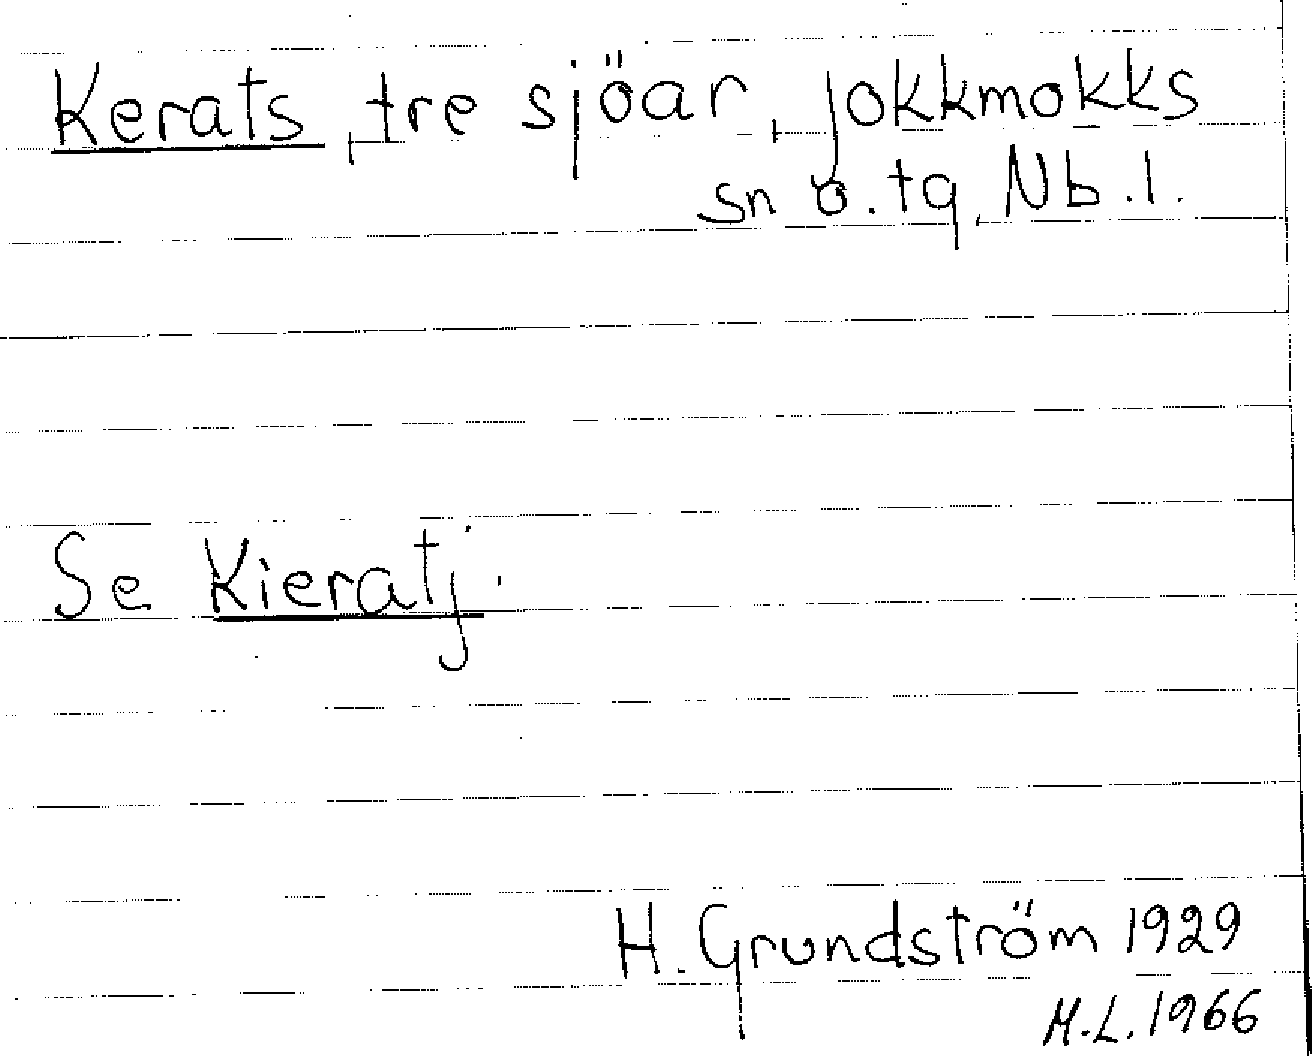 Kerats, tre sjöar, Jokkmokks
sn o. tg, Nb.l.
Se Kieratj.
H. Grundström 1929
M.L. 1966